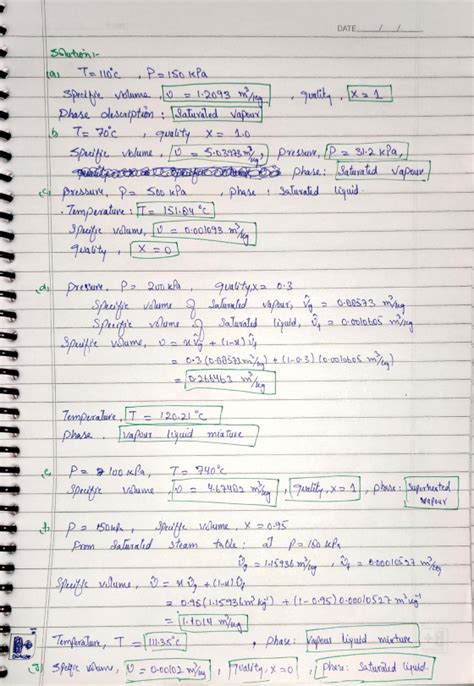 DATE / /
Solution:-
(a) T = 110°C , P = 150 kPa
Specific volume, v̂ = 1.2093 m³/kg , quality, x = 1
Phase description : Saturated vapour
b T = 70°C , quality x = 1.0
Specific volume, v̂ = 5.03973 m³/kg, Pressure, P = 31.2 kPa,
Phase: Saturated vapour
(c) Pressure, P = 500 kPa , phase : Saturated liquid.
Temperature : T = 151.84 °C
Specific volume, v̂ = 0.001093 m³/kg
Quality, x = 0
(d) Pressure, P = 200 kPa , Quality, x = 0.3
Specific volume of Saturated vapour, v̂g = 0.88573 m³/kg
Specific volume of Saturated liquid, v̂f = 0.0010605 m³/kg
Specific volume, v = x v̂g + (1-x) v̂f
= 0.3 (0.88573 m³/kg) + (1-0.3) (0.0010605 m³/kg)
= 0.266463 m³/kg
Temperature, T = 120.21 °C
Phase. vapour liquid mixture
e P = 100 kPa, T = 740°C
Specific volume, v̂ = 4.67402 m³/kg , quality, x = 1 , phase: Superheated vapour
f. P = 150kPa , Specific volume, x = 0.95
From Saturated steam table: at P = 150 kPa
v̂g = 1.15936 m³/kg , v̂f = 0.0010527 m³/kg
Specific volume, v̂ = x v̂g + (1-x) v̂f
= 0.95 (1.15936 m³kg⁻¹) + (1-0.95) 0.0010527 m³kg⁻¹
= 1.1014 m³/kg
Temperature, T = 111.35°C , phase: Vapour liquid mixture
Specific volume, v̂ = 0.00102 m³/kg , Quality, x = 0 , Phase: Saturated liquid.